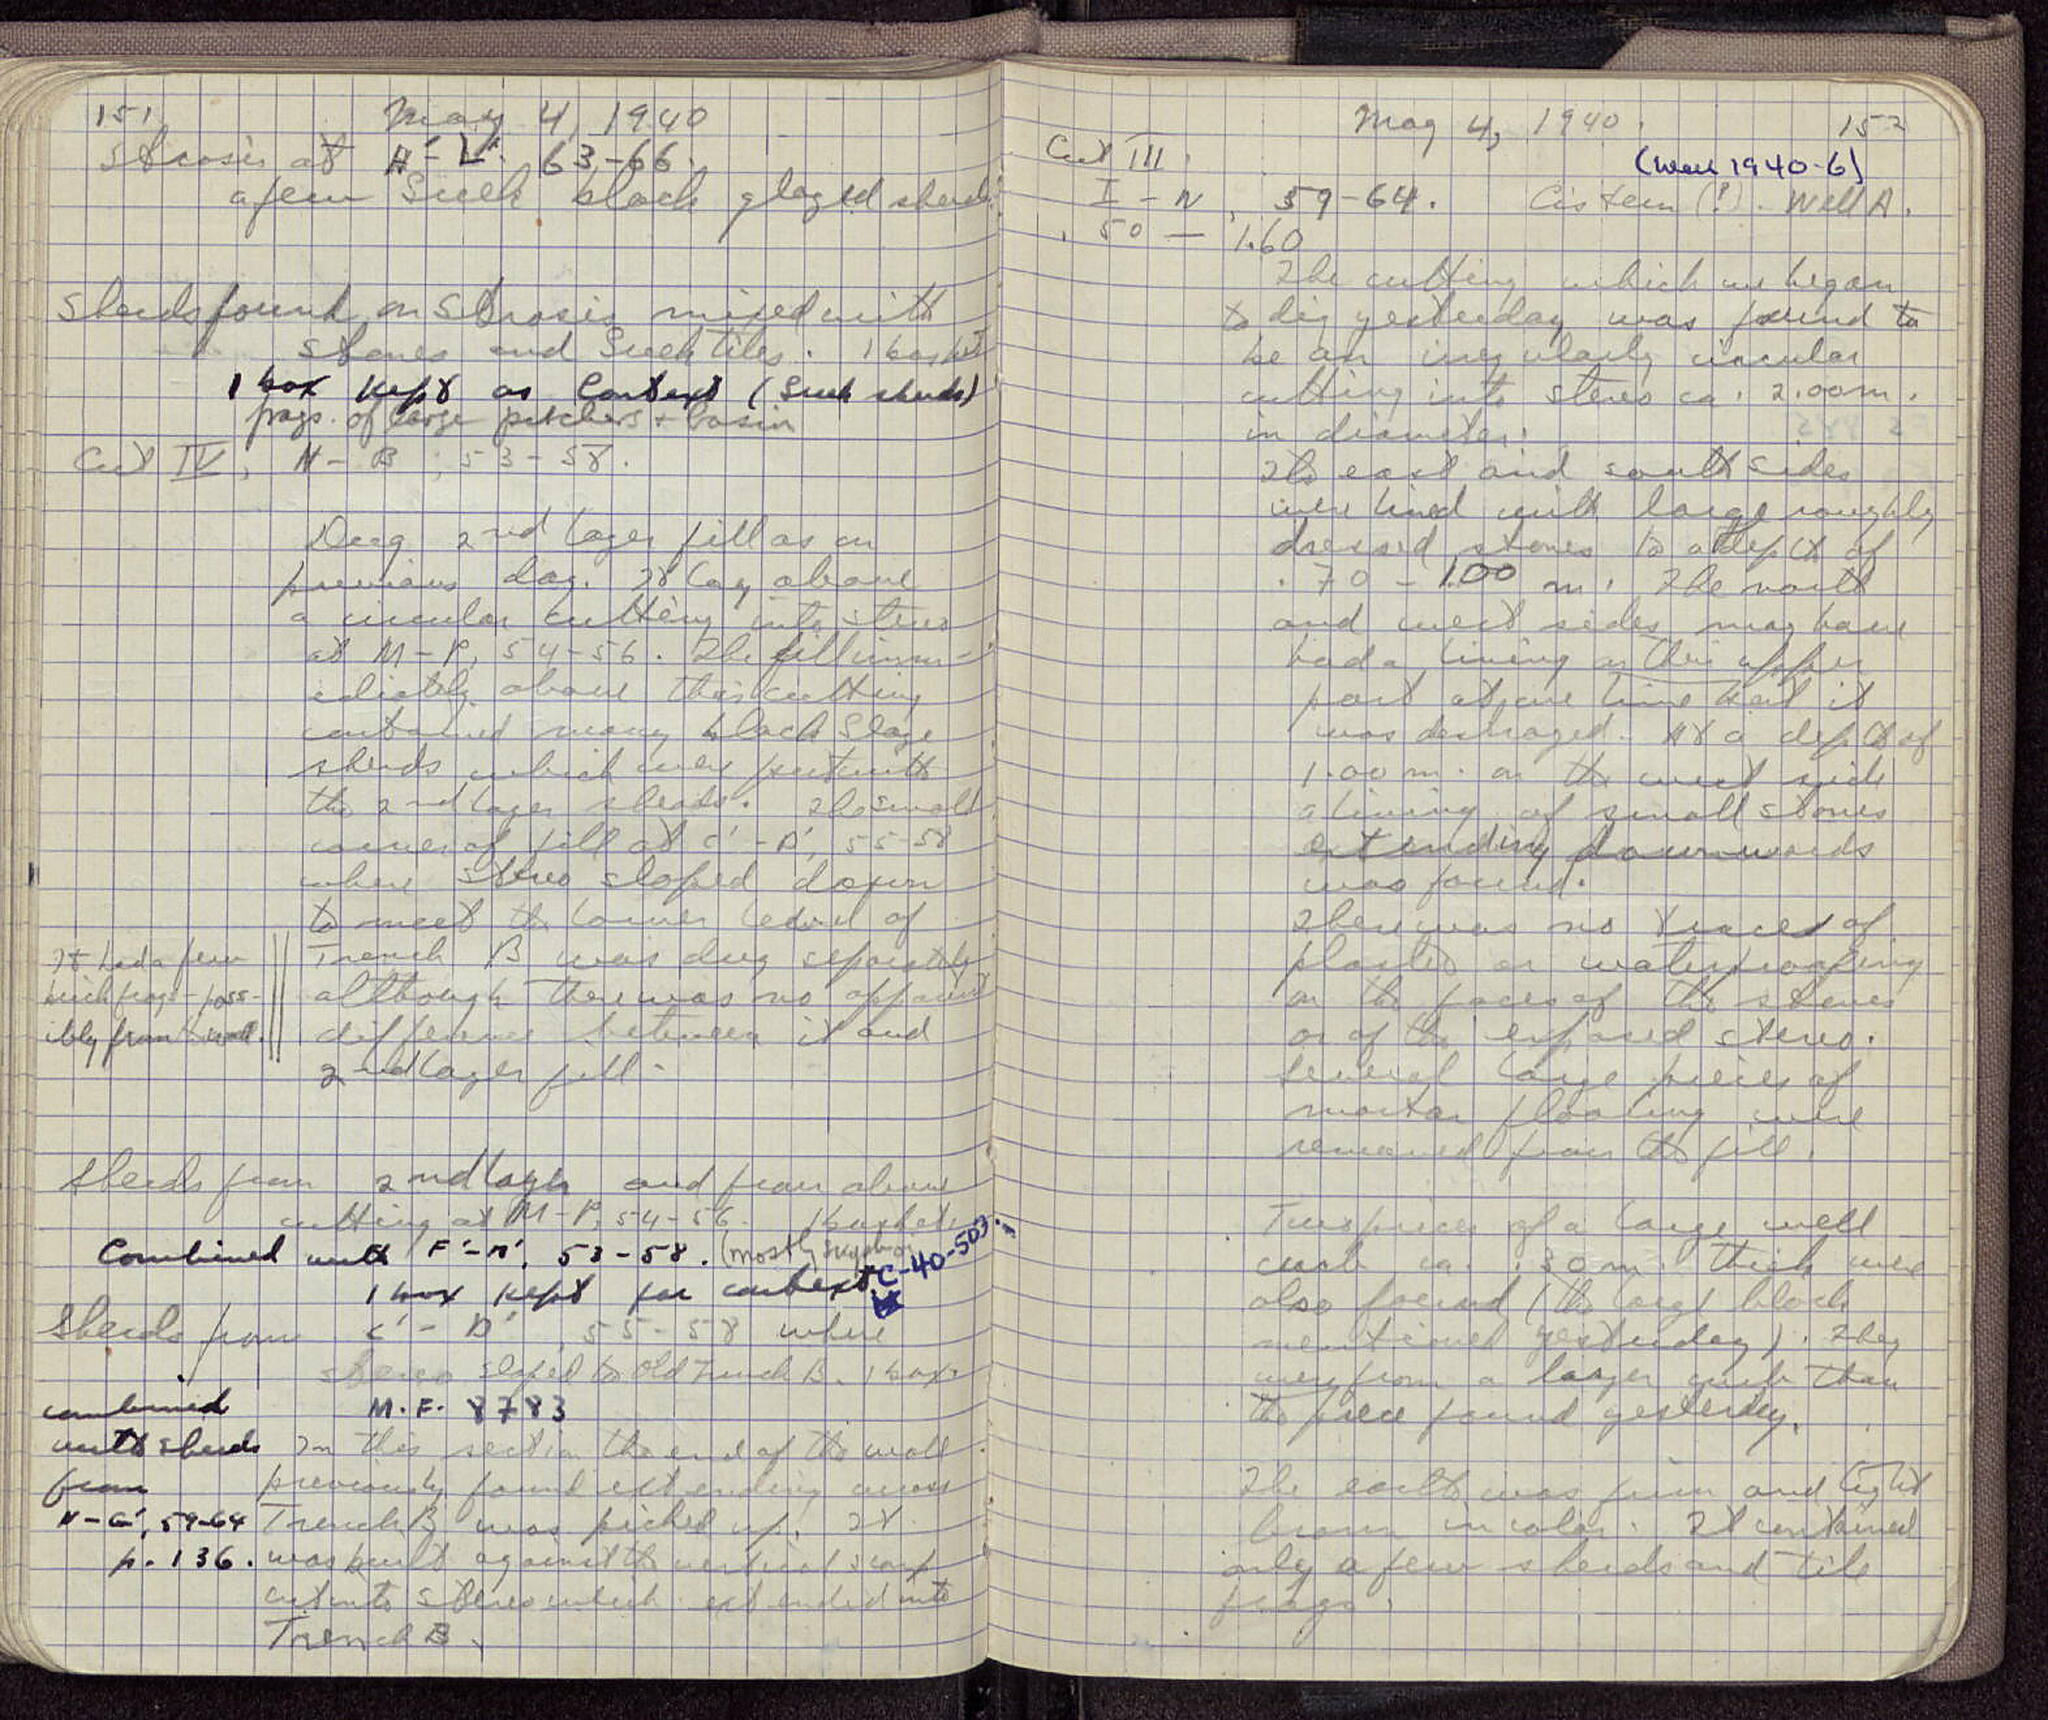 151
May 4, 1940
Strosis at A'-L'. 63-66.
a few Greek black glazed sherds.
Sherds found on Strosis mixed with
stones and Greek tiles. 1 basket
1 box kept as Context (Greek sherds)
frags. of large pitchers + basin
Cut IV, N-B; 53-58.
Dug 2nd layer fill as on
previous day. It lay above
a circular cutting into stereo
at M-P, 54-56. The fill imm-
ediately above this cutting
contained many black Glaze
sherds which were put with
the 2nd layer sherds. The small
corner of fill at C'-D', 55-58
where stereo sloped down
to meet the lower level of
Trench B was dug separately
although there was no apparent
difference between it and
2nd layer fill.
It had a few
brick frags - poss-
ibly from wall.
Sherds from 2nd layer and from above
cutting at M-P, 54-56. 1 basket
Combined with F'-N', 53-58. (mostly
1 box kept for context C-40-503.
Sherds from C'-D', 55-58 where
stereo sloped to Old Trench B. 1 box.
M.F. 8783
combined
with sherds
from
N-G', 59-64
p. 136.
In this section the end of the wall
previously found extending across
Trench B was picked up. It
was built against the vertical scarp
cut into stereo which extended into
Trench B.
May 4, 1940. 152
Cut III. (Well 1940-6)
I-N, 59-64. Cistern (?). Well A.
.50 — 1.60
The cutting which we began
to dig yesterday was found to
be an irregularly circular
cutting into stereo ca. 2.00 m.
in diameter.
Its east and south sides
were lined with large roughly
dressed stones to a depth of
.70 - 1.00 m. The north
and west sides may have
had a lining in their upper
part at one time but it
was destroyed. At a depth of
1.00 m. on the west side
a lining of small stones
extending downwards
was found.
There was no traces of
plaster or waterproofing
on the faces of the stones
or of the exposed stereo.
Several large pieces of
mortar flooring were
removed from the fill.
Two pieces of a large well
curb ca. .30 m. thick were
also found (the large block
mentioned yesterday). They
were from a larger curb than
the piece found yesterday.
The earth was firm and light
brown in color. It contained
only a few sherds and tile
frags.